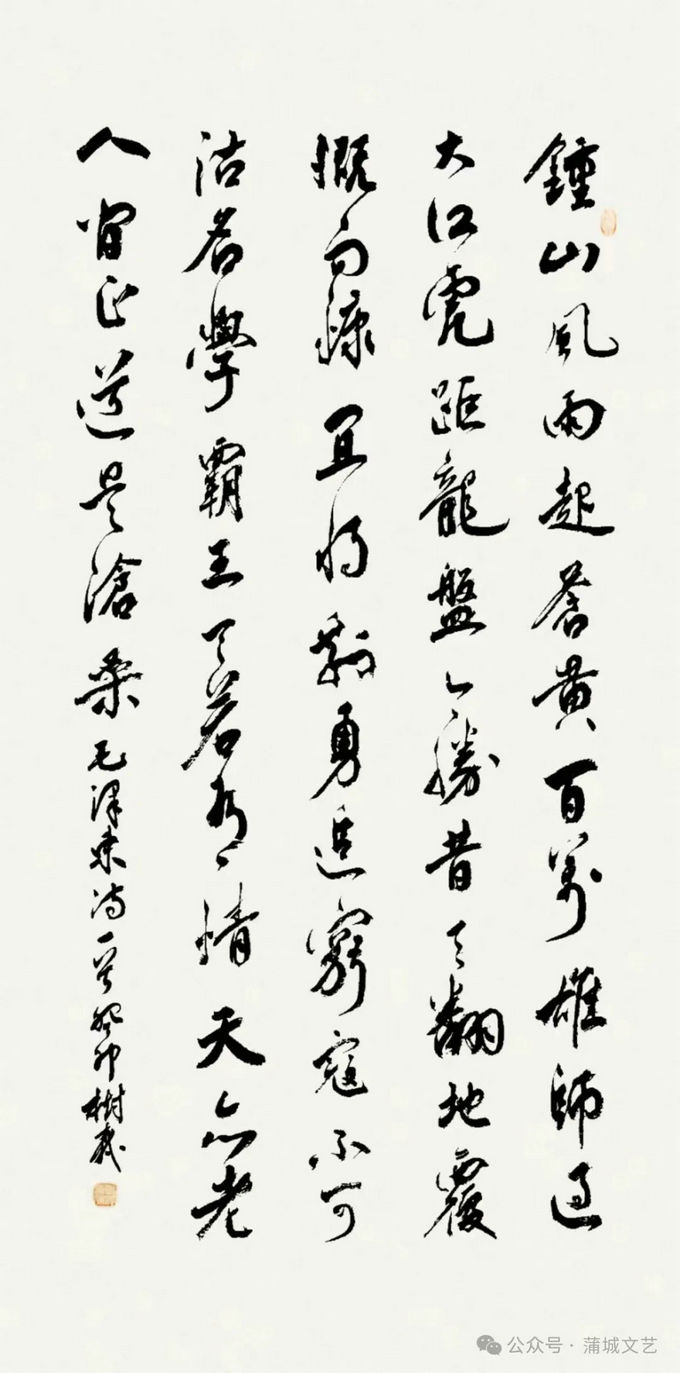 鍾山風雨起蒼黄百萬雄師過
大江虎距龍盤今勝昔天翻地覆
慨而慷宜將剩勇追窮寇不可
沽名學霸王天若有情天亦老
人間正道是滄桑毛澤東詩一首癸卯樹
公众号·蒲城文艺